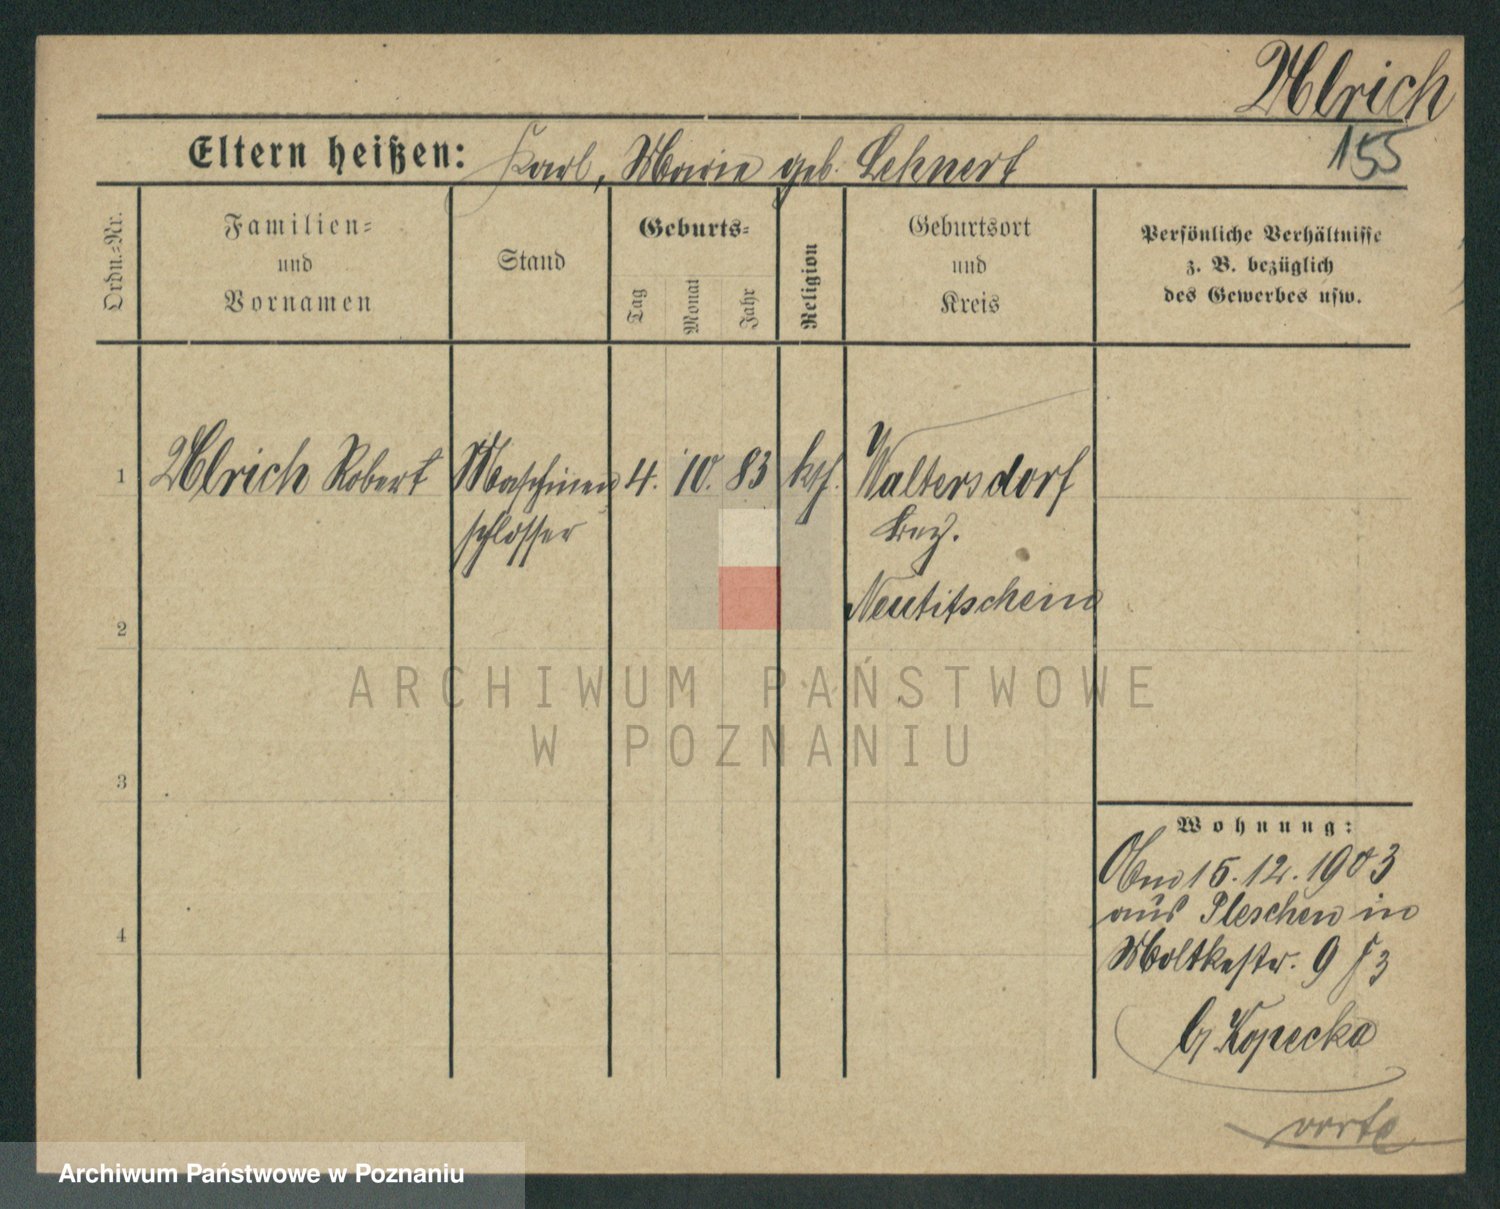 Ulrich
155
Eltern heißen: Karl, Marie geb. Lehnert
Ordn.=Nr.
Familien=
und
Vornamen
Stand
Geburts=
Tag
Monat
Jahr
Religion
Geburtsort
und
Kreis
Persönliche Verhältnisse
z. B. bezüglich
des Gewerbes usw.
1 Ulrich Robert Maschinen 4. 10. 83 kth. Waltersdorf
schlosser Bez.
Neutitschein
2
ARCHIWUM PAŃSTWOWE
W POZNANIU
3
Wohnung:
15.12.1903
aus Pleschen in
4
Moltkestr. 9 3
b/ Kopecka
Archiwum Państwowe w Poznaniu